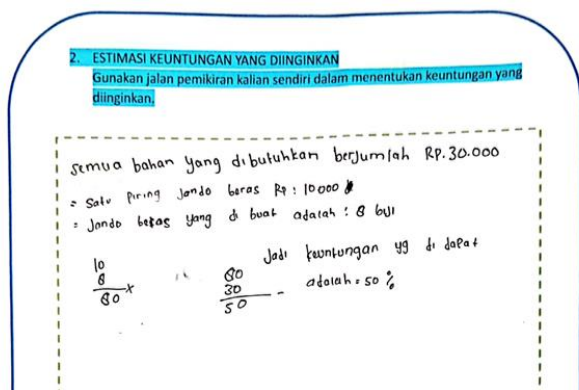 2. ESTIMASI KEUNTUNGAN YANG DIINGINKAN
Gunakan jalan pemikiran kalian sendiri dalam menentukan keuntungan yang
diinginkan.
semua bahan yang dibutuhkan berjumlah RP.30.000
= Satu Piring Jando beras Rp : 10000
= Jando beras yang di buat adalah : 8 biji
Jadi keuntungan yg di dapat
adalah = 50 %
10
8 x
80
80
30 -
50